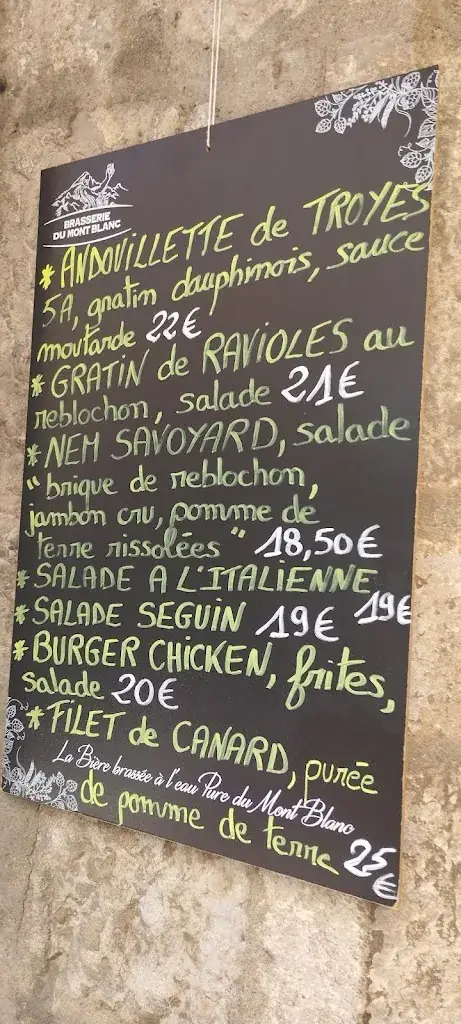 BRASSERIE
DU MONT BLANC
* ANDOUILLETTE de TROYES
5A, gratin dauphinois, sauce
moutarde 22€
* GRATIN de RAVIOLES au
reblochon, salade 21€
* NEM SAVOYARD, salade
" brique de reblochon,
jambon cru, pomme de
terre rissolées " 18,50€
* SALADE A L'ITALIENNE
19€
* SALADE SEGUIN 19€
* BURGER CHICKEN, frites,
salade 20€
* FILET de CANARD, purée
La Bière brassée à l'eau Pure du Mont Blanc
de pomme de terre 25
€